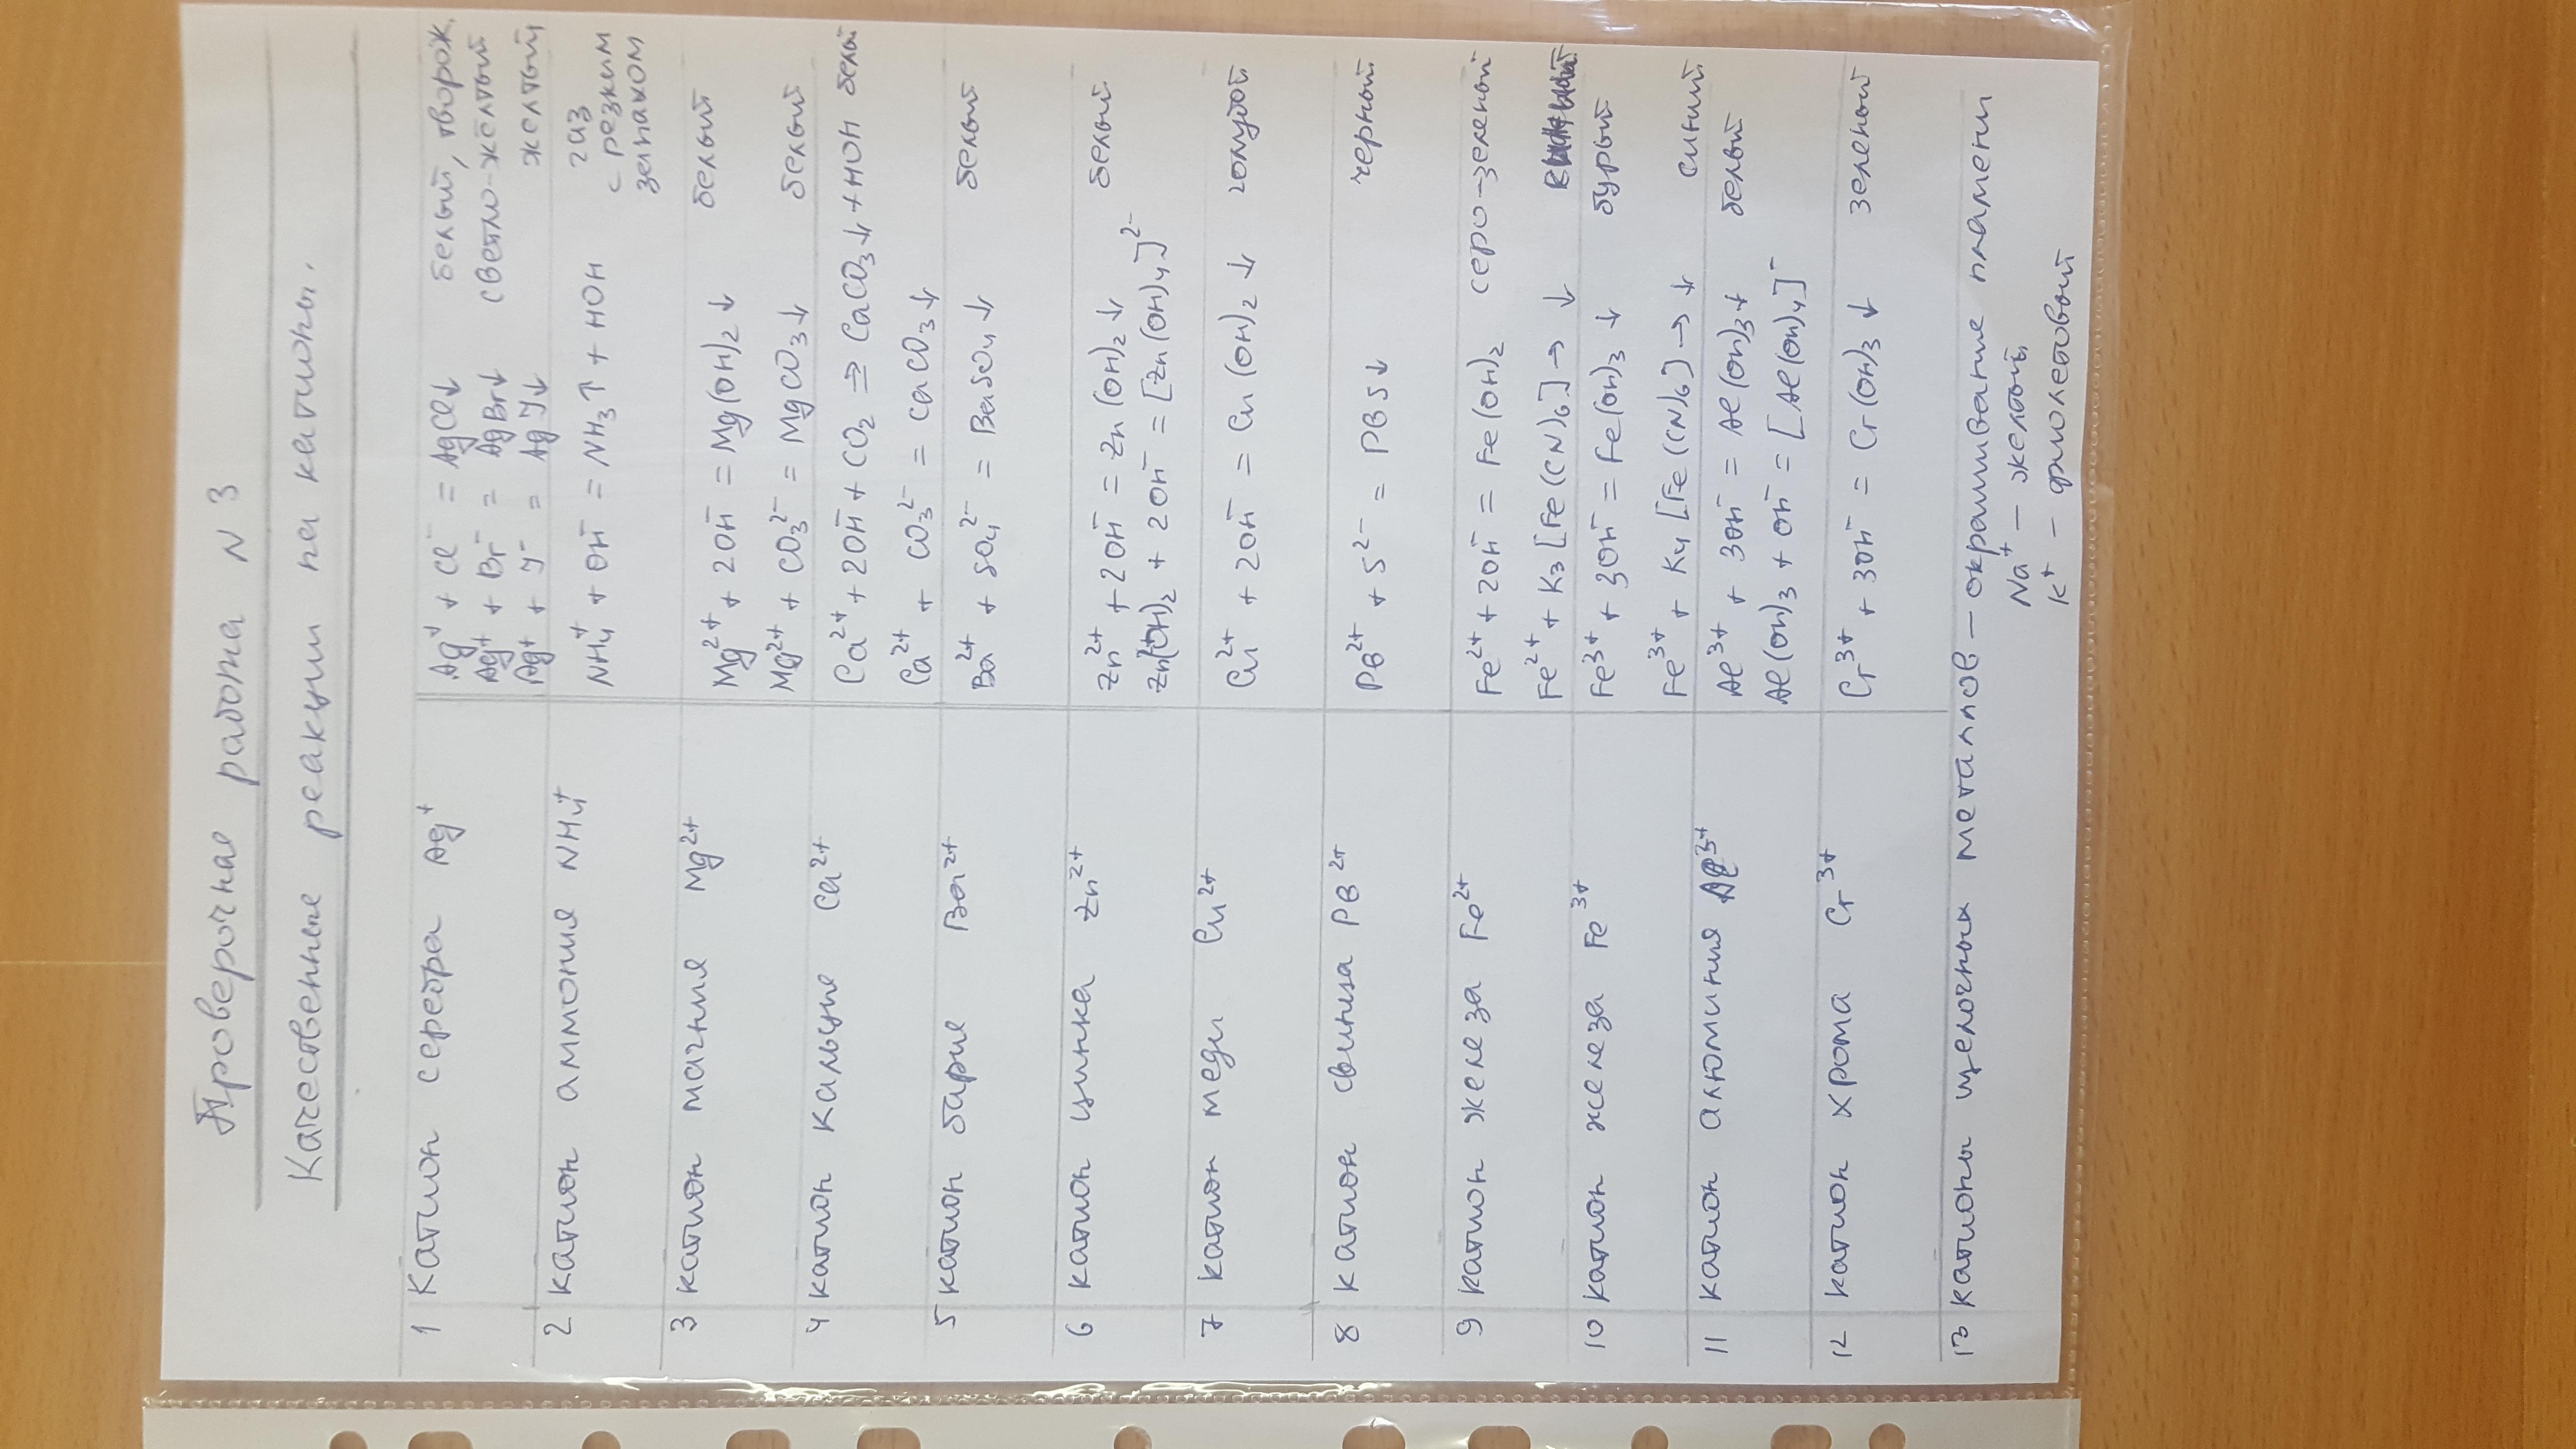 Проверочная работа N 3
Качественные реакции на катионы.
1 Катион серебра Ag⁺ Ag⁺ + Cl⁻ = AgCl↓ белый, творож.
Ag⁺ + Br⁻ = AgBr↓ светло-жёлтый
Ag⁺ + J⁻ = AgJ↓ желтый
2 катион аммония NH₄⁺ NH₄⁺ + OH⁻ = NH₃↑ + HOH газ
с резким
запахом
3 катион магния Mg²⁺ Mg²⁺ + 2OH⁻ = Mg(OH)₂↓ белый
Mg²⁺ + CO₃²⁻ = MgCO₃↓ белый
4 катион кальция Ca²⁺ Ca²⁺ + 2OH⁻ + CO₂ = CaCO₃↓ + HOH белый
Ca²⁺ + CO₃²⁻ = CaCO₃↓
5 катион бария Ba²⁺ Ba²⁺ + SO₄²⁻ = BaSO₄↓ белый
6 катион цинка Zn²⁺ Zn²⁺ + 2OH⁻ = Zn(OH)₂↓ белый
Zn(OH)₂ + 2OH⁻ = [Zn(OH)₄]²⁻
7 катион меди Cu²⁺ Cu²⁺ + 2OH⁻ = Cu(OH)₂↓ голубой
8 катион свинца Pb²⁺ Pb²⁺ + S²⁻ = PbS↓ черный
9 катион железа Fe²⁺ Fe²⁺ + 2OH⁻ = Fe(OH)₂ серо-зеленый
Fe²⁺ + K₃[Fe(CN)₆] → ↓
10 катион железа Fe³⁺ Fe³⁺ + 3OH⁻ = Fe(OH)₃↓ бурый
Fe³⁺ + K₄[Fe(CN)₆] → ↓ синий
11 катион алюминия Al³⁺ Al³⁺ + 3OH⁻ = Al(OH)₃↓ белый
Al(OH)₃ + OH⁻ = [Al(OH)₄]⁻
12 катион хрома Cr³⁺ Cr³⁺ + 3OH⁻ = Cr(OH)₃↓ зеленый
13 катионы щелочных металлов – окрашивание пламени
Na⁺ – желтый
K⁺ – фиолетовый